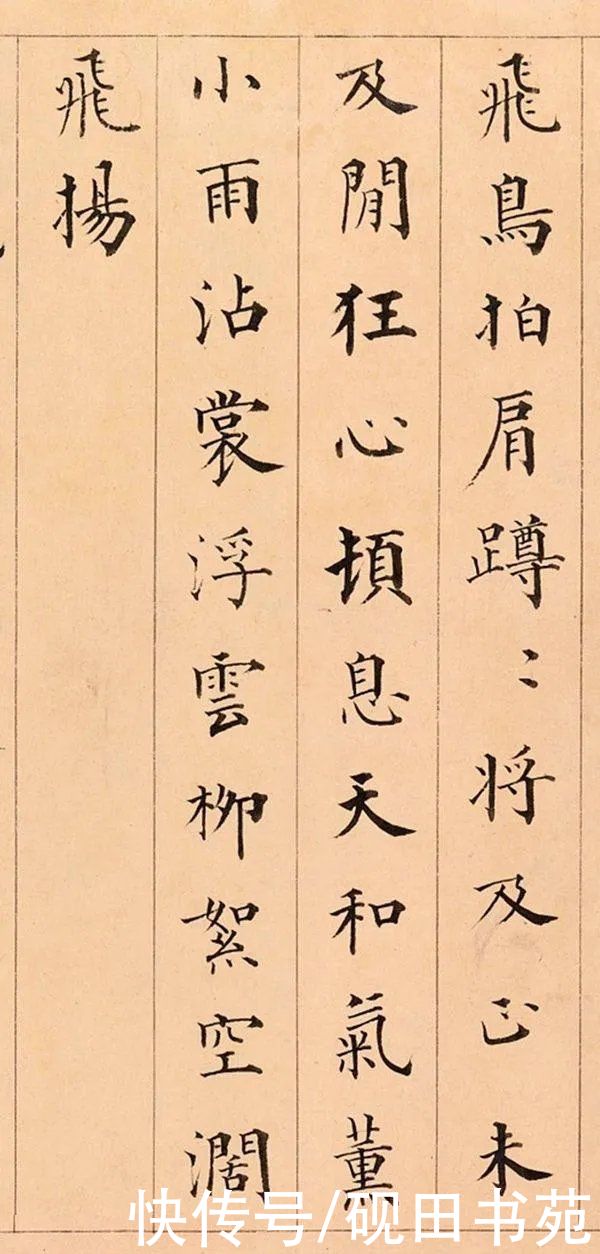 飛鳥拍肩蹲〻将及正未
及閒狂心頓息天和氣薰
小雨沾裳浮雲柳絮空濶
飛揚
快传号/砚田书苑